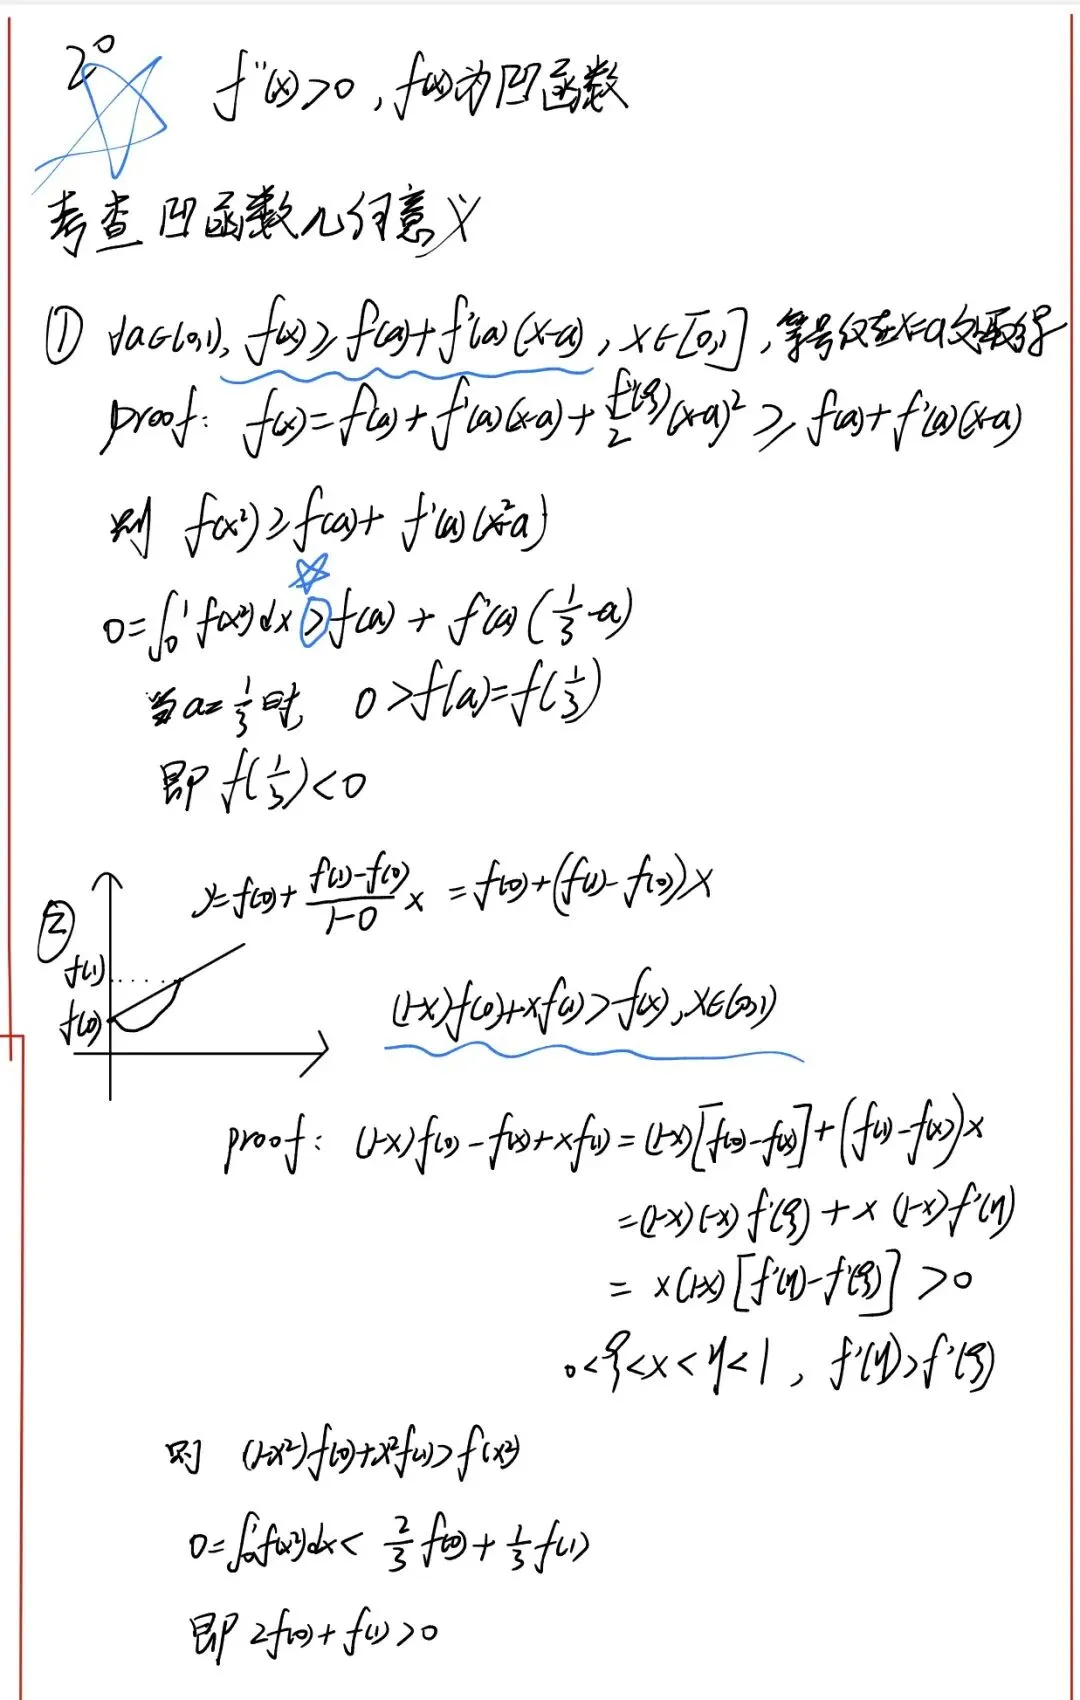 2° f''(x)>0, f(x)为凹函数
考查凹函数几何意义
① ∀a∈(0,1), f(x)≥f(a)+f'(a)(x-a), x∈[0,1], 等号仅在x=a处取得
proof: f(x)=f(a)+f'(a)(x-a)+f''(ξ)/2(x-a)²≥f(a)+f'(a)(x-a)
则 f(x²)≥f(a)+f'(a)(x²-a)
0=∫₀¹f(x²)dx>f(a)+f'(a)(1/3-a)
当a=1/3时, 0>f(a)=f(1/3)
即 f(1/3)<0
② y=f(0)+(f(1)-f(0))/(1-0)x=f(0)+(f(1)-f(0))x
f(1)
f(0)
(1-x)f(0)+xf(1)>f(x), x∈(0,1)
proof: (1-x)f(0)-f(x)+xf(1)=(1-x)[f(0)-f(x)]+(f(1)-f(x))x
=(1-x)(-x)f'(ξ)+x(1-x)f'(η)
=x(1-x)[f'(η)-f'(ξ)]>0
0<ξ<x<η<1, f'(η)>f'(ξ)
则 (1-x²)f(0)+x²f(1)>f(x²)
0=∫₀¹f(x²)dx<2/3f(0)+1/3f(1)
即 2f(0)+f(1)>0